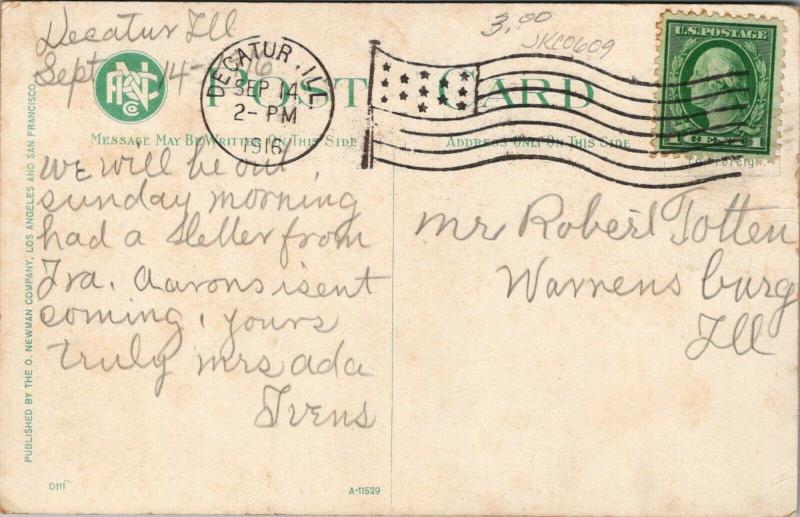 Decatur Ill
Sept 14-1916
3.00
JKC0609
POST CARD
DECATUR, ILL.
SEP 14
2- PM
1916
U.S. POSTAGE
1 CENT 1
MESSAGE MAY BE WRITTEN ON THIS SIDE
ADDRESS ONLY ON THIS SIDE
we will be out
sunday morning
had a Letter from
Ira. Aarons isent
coming. yours
truly mrs ada
Ivens
Mr Robert Totten
Warrensburg
Ill
PUBLISHED BY THE O. NEWMAN COMPANY, LOS ANGELES AND SAN FRANCISCO
D111
A-11529